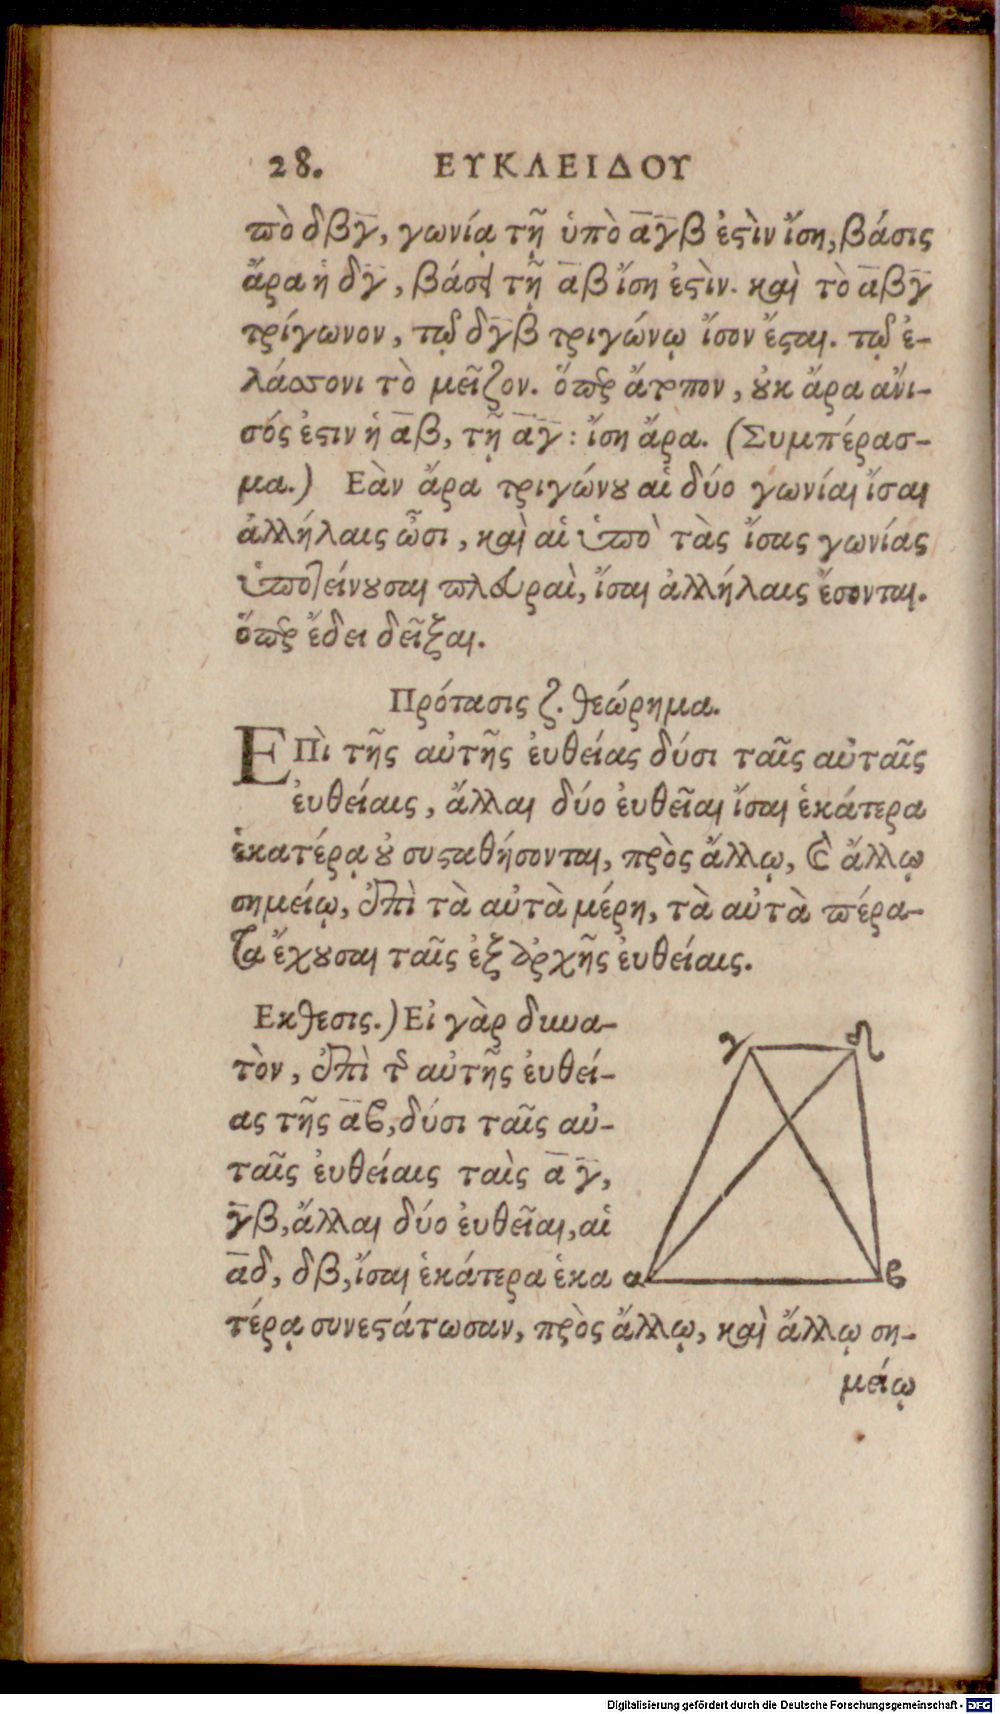 28. ΕΥΚΛΕΙΔΟΥ
πὸ δβγ, γωνίᾳ τῇ ὑπὸ αγβ ἐςὶν ἴση, βάσις
ἄρα ἡ δγ, βάσει τῇ αβ ἴση ἐςὶν. καὶ τὸ αβγ
τρίγωνον, τῷ δγβ τριγώνῳ ἴσον ἔςαι. τῷ ἐ-
λάσσονι τὸ μεῖζον. ὅπερ ἄτοπον, ȣκ ἄρα ἄνι-
σός ἐςιν ἡ αβ, τῇ αγ: ἴση ἄρα. (Συμπέρασ-
μα.) Εὰν ἄρα τριγώνȣ αἱ δύο γωνίαι ἴσαι
ἀλλήλαις ὦσι, καὶ αἱ ὑπὸ τὰς ἴσας γωνίας
ὑποτείνȣσαι πλευραὶ, ἴσαι ἀλλήλαις ἔσονται.
ὅπερ ἔδει δεῖξαι.
Πρότασις ζ. θεώρημα.
ΕΠὶ τῆς αὐτῆς ἐυθείας δύσι ταῖς αὐταῖς
ἐυθείαις, ἄλλαι δύο ἐυθεῖαι ἴσαι ἑκάτερα
ἑκατέρᾳ ȣ συςαθήσονται, πρὸς ἄλλῳ, καὶ ἄλλῳ
σημείῳ, ἐπὶ τὰ αὐτὰ μέρη, τὰ αὐτὰ πέρα-
τα ἔχȣσαι ταῖς ἐξ ἀρχῆς ἐυθείαις.
Εκθεσις.) Εἰ γὰρ δυνα-
τὸν, ἐπὶ τῆς αὐτῆς ἐυθεί-
ας τῆς αβ, δύσι ταῖς αὐ-
ταῖς ἐυθείαις ταὶς αγ,
γβ, ἄλλαι δύο ἐυθεῖαι, αἱ
αδ, δβ, ἴσαι ἑκάτερα ἑκα
τέρᾳ συνεςάτωσαν, πρὸς ἄλλῳ, καὶ ἄλλῳ ση-
μείῳ
γ δ
α β
Digitalisierung gefördert durch die Deutsche Forschungsgemeinschaft - DFG